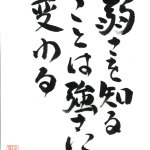 弱さを知る
ことは強さに
変わる